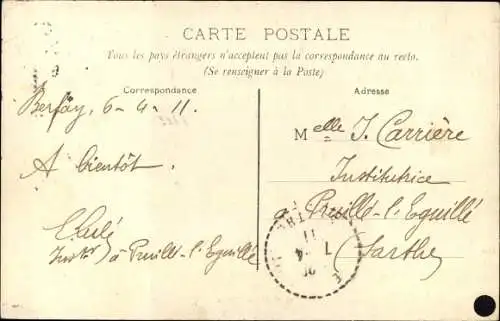 CARTE POSTALE
Tous les pays étrangers n'acceptent pas la correspondance au recto.
(Se renseigner à la Poste)
Correspondance
Adresse
Berfay, 6-4-11.
A bientôt.
Instr à Pruillé-l'Eguillé
Melle J. Carrière
Institutrice
à Pruillé-l'Eguillé
(Sarthe)